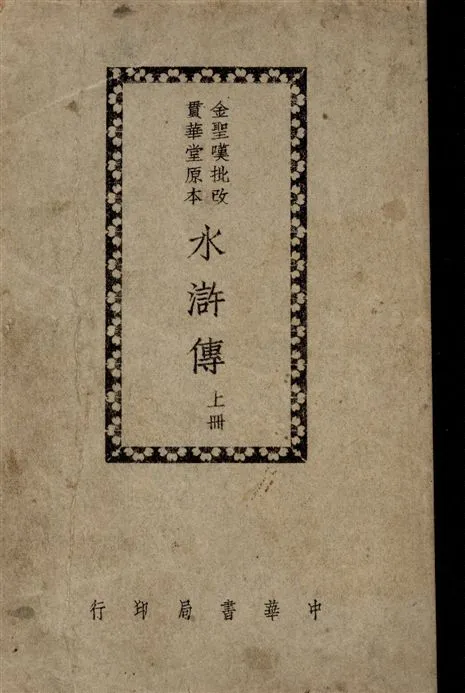 金聖嘆批改
貫華堂原本
水滸傳
上冊
中華書局印行